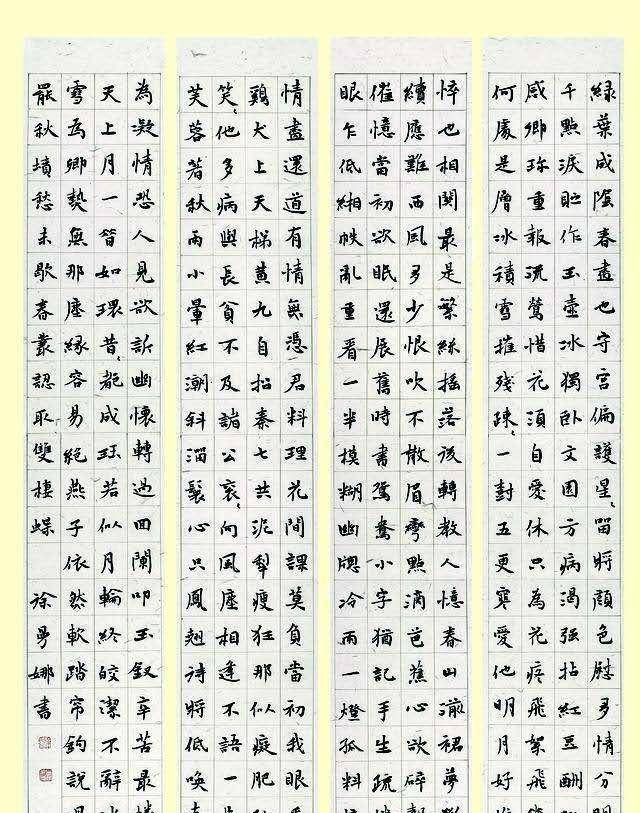 綠葉成陰春盡也守宮偏護星〻留將顏色慰多情分
千點淚貯作玉壺冰獨卧文園方病渴强拈紅豆酬
感卿珍重報流鶯惜花須自愛休只為花疼飛絮飛
何處是層冰積雪摧殘疎〻一封五更寒愛他明月好
悴也相關最是繁絲搖落後轉教人憶春山湔裙夢
續應難西風多少恨吹不散眉彎點滴芭蕉心欲碎
催憶當初欲眠還展舊時書鴛鴦小字猶記手生疏
眼乍低緗帙亂重看一半模糊幽牕冷雨一燈孤料
情盡還道有情無憑君料理花間課莫負當初我眼
鷄犬上天梯黄九自招秦七共泥犁瘦狂那似癡肥
笑〻他多病與長貧不及諸公袞〻向風塵相逢不語一
芙蓉著秋雨小暈紅潮斜溜鬟心只鳳翹待將低喚
為凝情恐人見欲訴幽懷轉過回闌叩玉釵辛苦最
天上月一昔如環昔〻都成玦若似月輪終皎潔不辭
雪為卿熱無那塵緣容易絕燕子依然軟踏帘鉤說
罷秋墳愁未歇春叢認取雙棲蝶 徐曼娜書